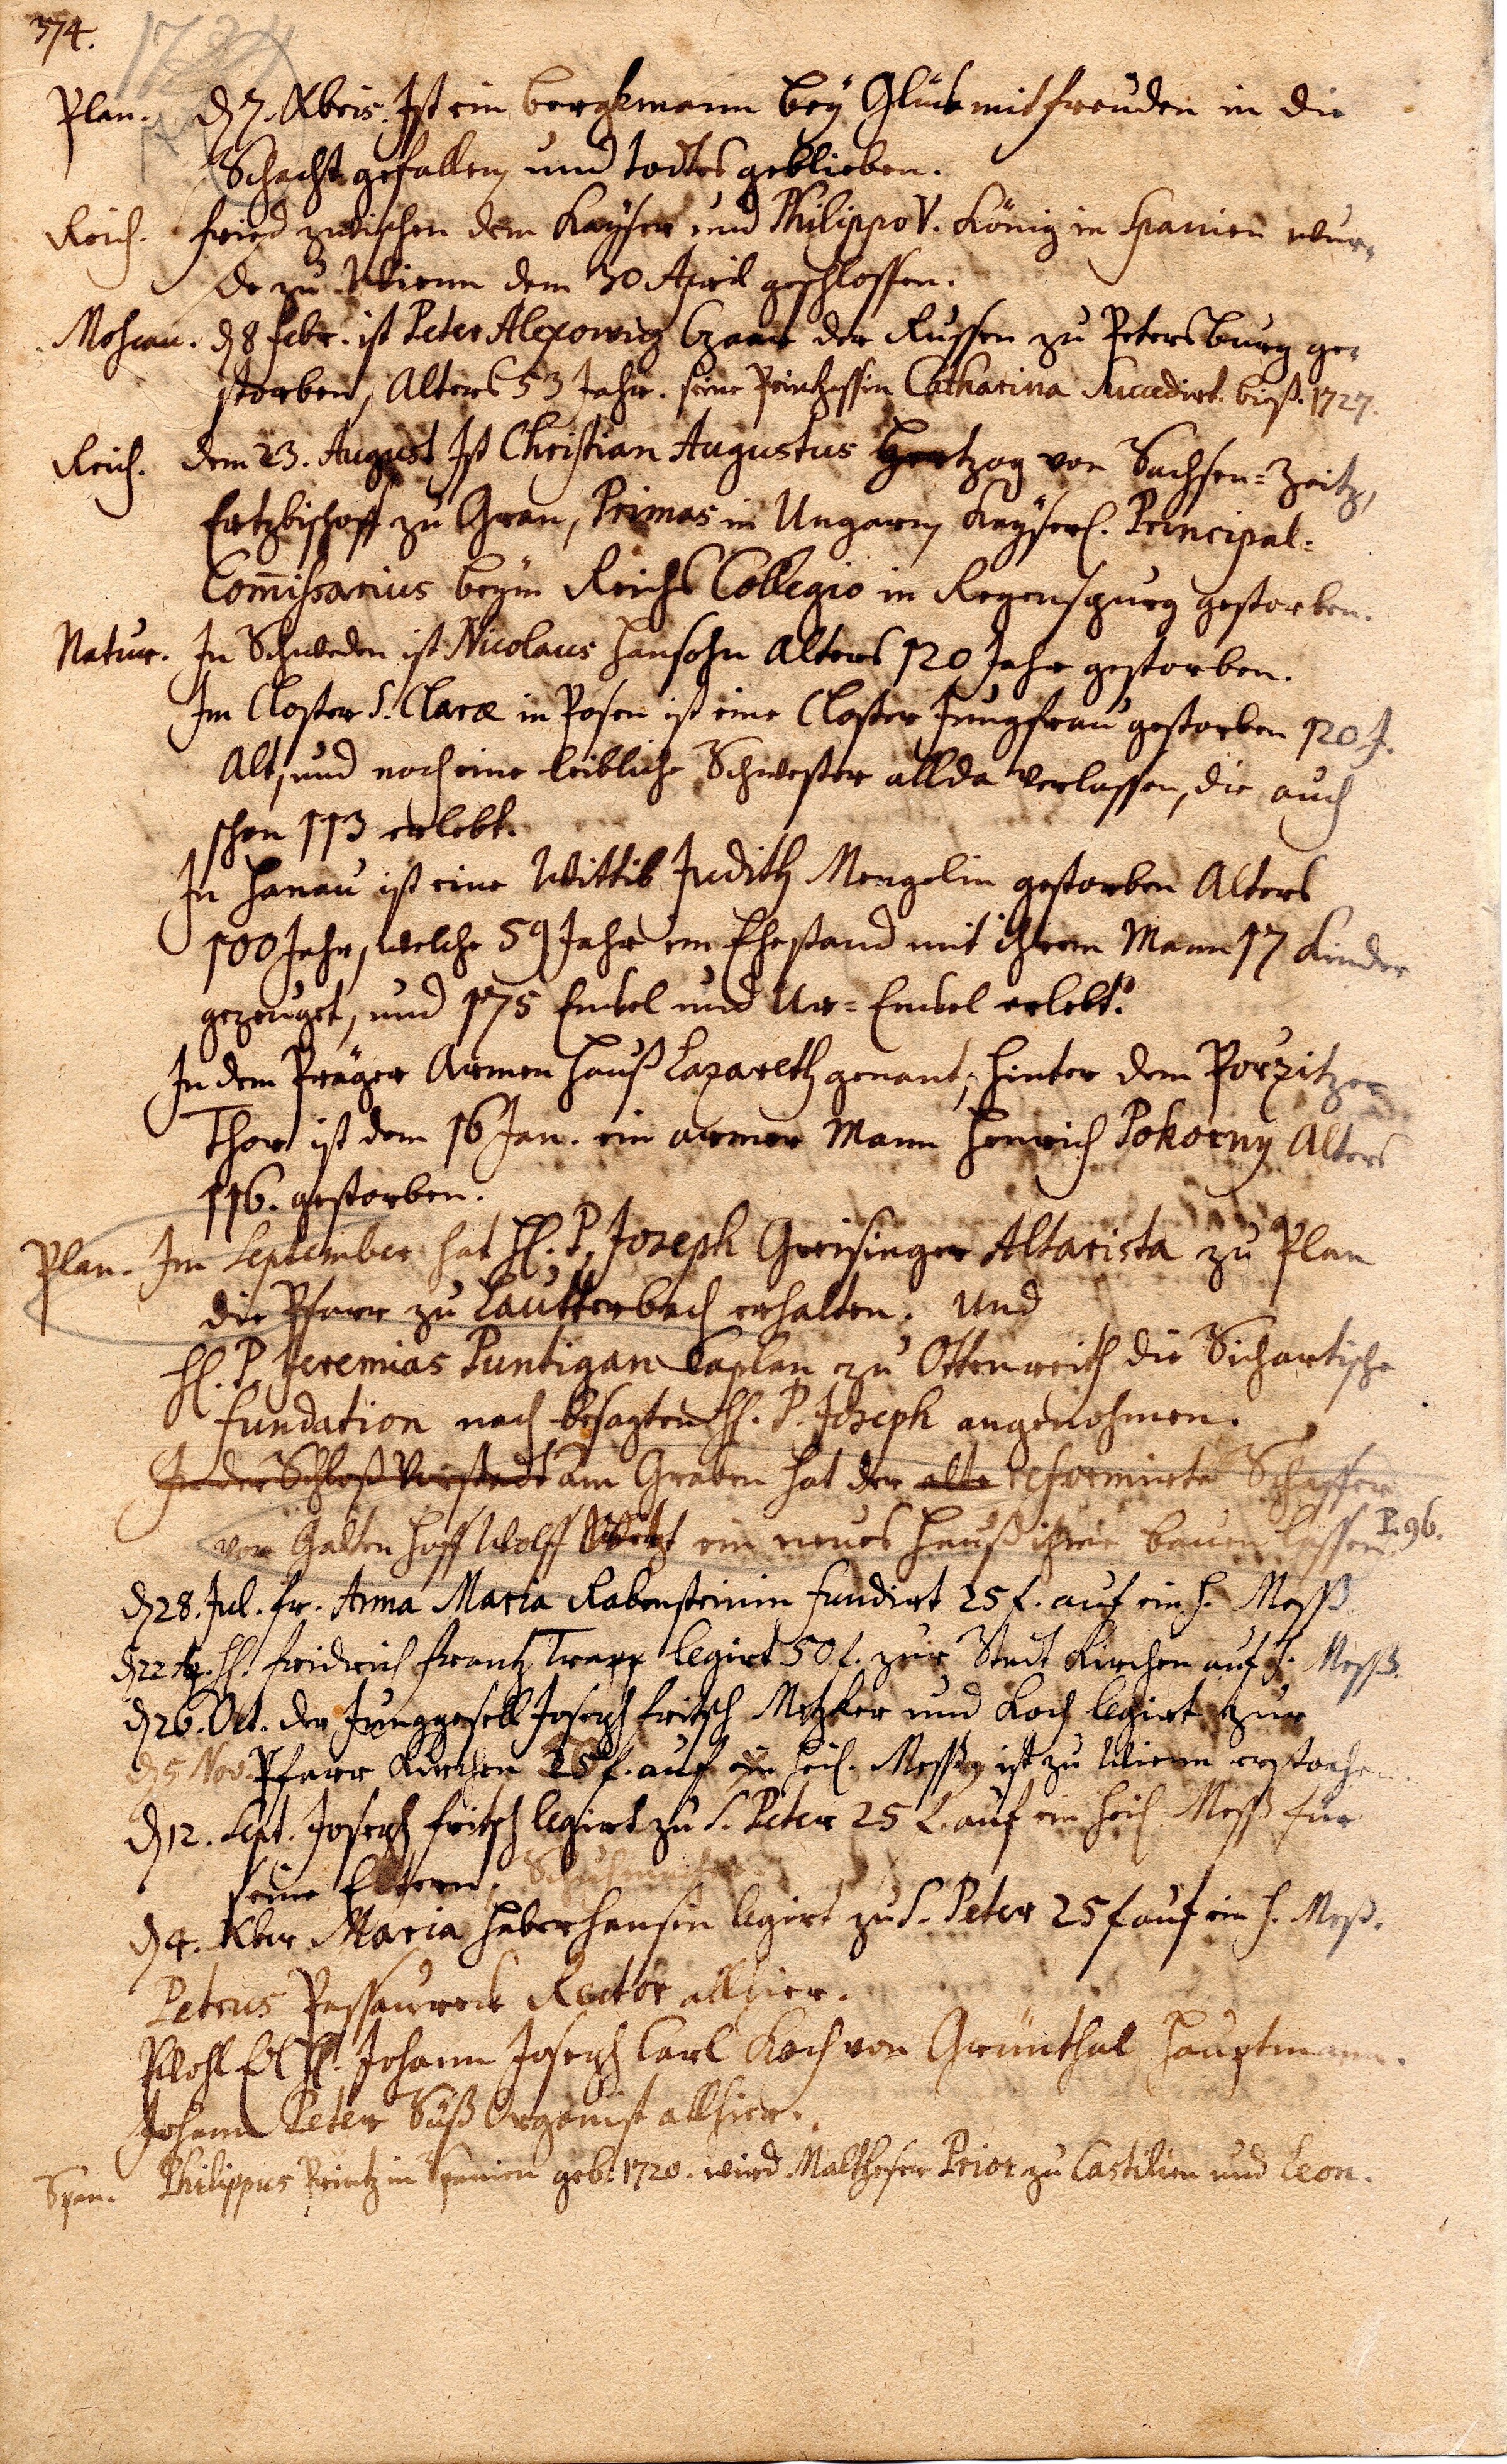 374.
Plan. d 7. Xbris. Ist ein bergkmann bey Glück mit freuden in die
Schacht gefallen, und todtes geblieben.
Reich. fried zwischen dem Kayser und Philippo V. König in Spanien wur„
de zu Wienn dem 30 April geschlossen.
Moscau. d 8 febr. ist Peter Alexowiz Czaar der Russen zu Petersburg ge„
storben, Alters 53 Jahr. seine Printzessin Catharina Succedirt. biß. 1727.
Reich. dem 23. August Ist Christian Augustus Hertzog von Sachsen=Zeitz,
Ertzbischoff zu Gran, Primas in Ungarn, Kayserl. Principal=
Com̄issarius beym Reichs Collegio in Regenspurg gestorben.
Natur. In Schweden ist Nicolaus Hansohn Alters 120 Jahr gestorben.
Im Closter S. Claræ in Posen ist eine Closter Jungfrau gestorben 120 J.
Alt, und noch eine leibliche Schwester allda verlassen, die auch
schon 113 erlebt.
In Hanau ist eine Wittib Judith Mengelin gestorben Alters
100 Jahr, welche 59 Jahr im Ehestand mit ihrem Mann 17 Kinder
gezeuget, und 175 Enckel und Ur=Enckel erlebt.
In dem Präger Armen Hauß Lazareth genant, hinter dem Porzitzer
Thor ist dem 16 Jan. ein armer Mann Henrich Pokorny Alters
116. gestorben.
Plan. Im September hat H. P. Joseph Greisinger Altarista zu Plan
die Pfarr zu Lautterbach erhalten. Und
H. P. Jeremias Puntigan Caplan zu Ottenreith die Sichartische
Fundation nach besagten H. P. Joseph angenohmen.
In der Schloß Vorstadt am Graben hat der alte reformirte Schaffer
von Galtenhoff Wolff ein neues Hauß ihme bauen lassen. P. 96.
d 28. Jul. fr. Anna Maria Rabensteinin fundirt 25 f. auf ein h. Meß.
d 22 H. fridrich frantz Trapp legirt 50 f. zur Stadt Kirchen auf h. Meß.
d 26. Oct. der Junggesell Joseph fritsch Metzker und Koch legirt zur
d 5 Nov. Pfarr Kirchen 25 f. auf ein heil. Meß, ist zu Wienn erstochen.
d 12. Sept. Joseph fritsch legirt zu S. Peter 25 f. auf ein heil. Meß für
seine Eltern. Schuhmacher
d 4. Xber Maria Haberhansin legirt zu S. Peter 25 f auf ein h. Meß.
Petrus Passaureck Rector allhier.
Wohl Edl H. Johann Joseph Carl Koch von Grünthal Hauptmann.
Johann Peter Süß Organist allhier.
Span. Philippus Printz in Spanien geb. 1720. wird Maltheser Prior zu Castilien und Leon.